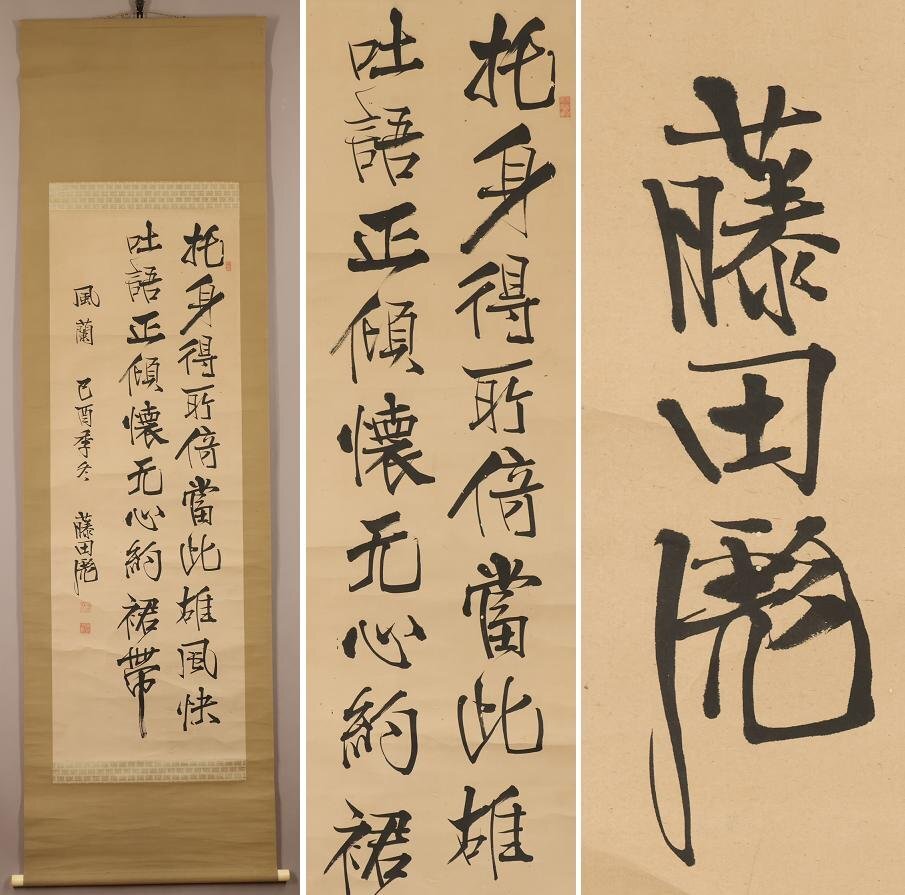 托身得所倚當此雄風快
吐語正傾懷无心約裙帶
風蘭 己酉季冬 藤田彪
托身得所倚當此雄
吐語正傾懷无心約裙
藤田彪